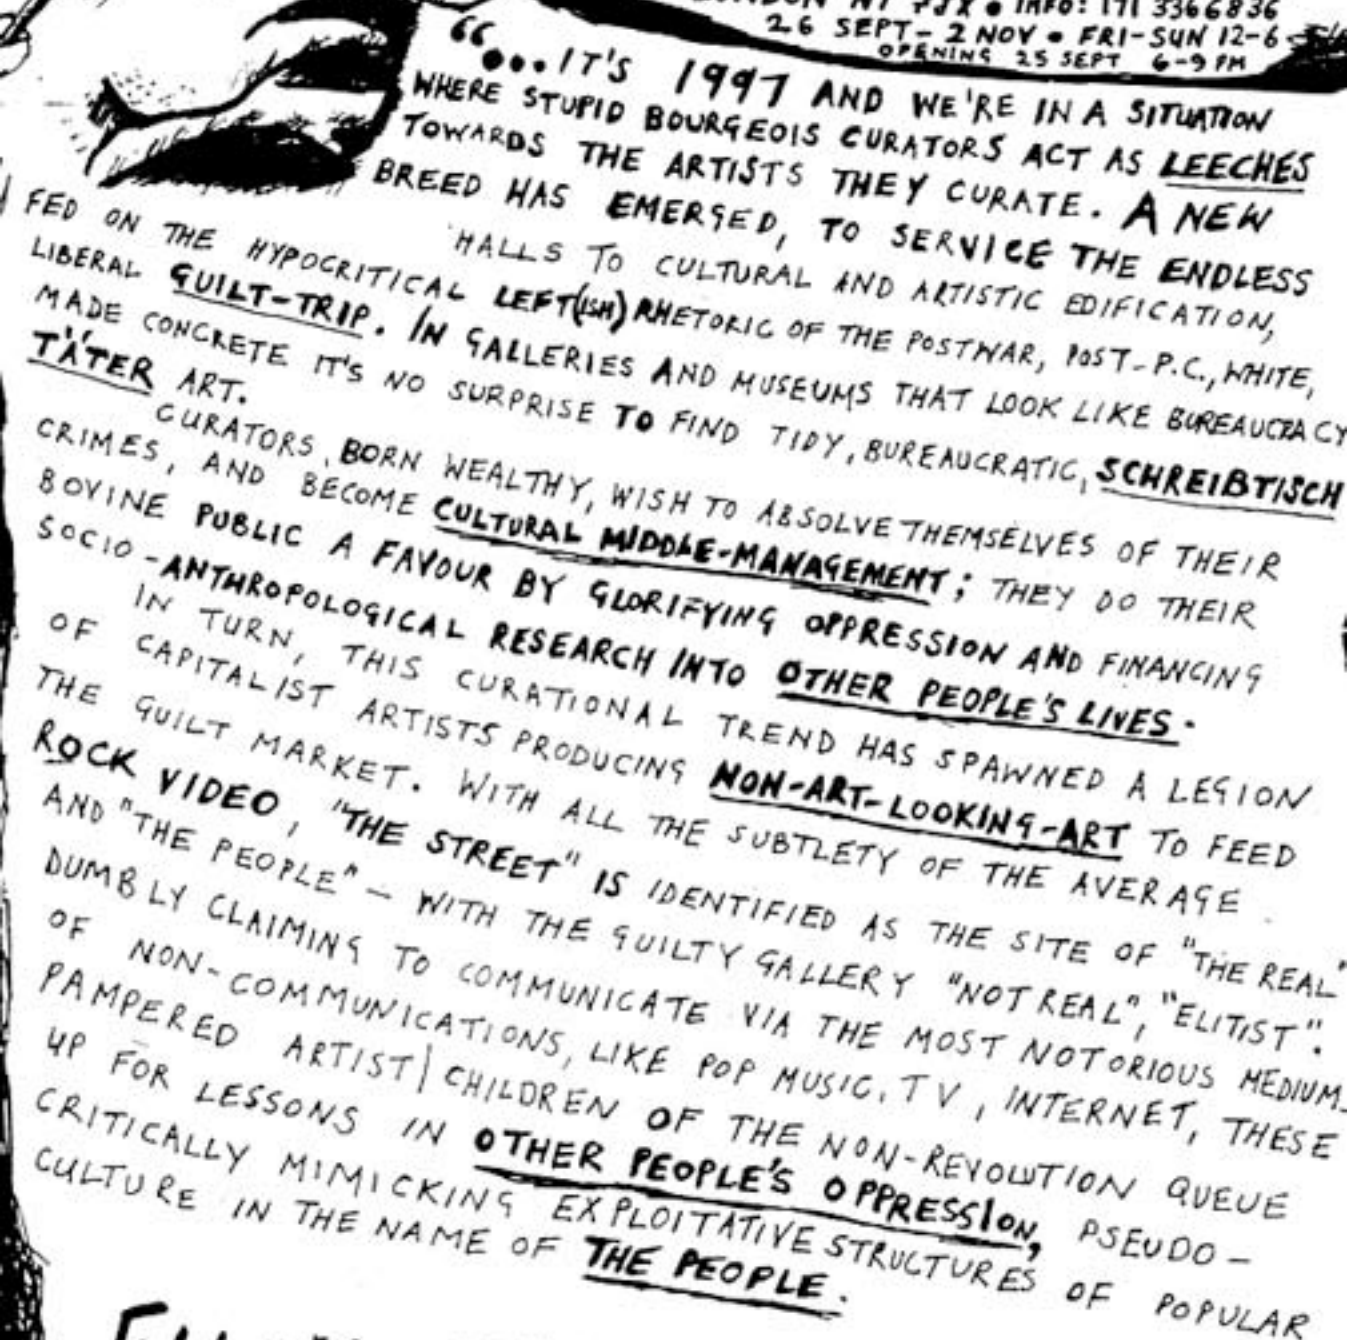 LONDON N1 • INFO: 171 3366836
26 SEPT - 2 NOV • FRI-SUN 12-6
OPENING 25 SEPT 6-9 PM
"...IT'S 1997 AND WE'RE IN A SITUATION
WHERE STUPID BOURGEOIS CURATORS ACT AS LEECHES
TOWARDS THE ARTISTS THEY CURATE. A NEW
BREED HAS EMERGED, TO SERVICE THE ENDLESS
HALLS TO CULTURAL AND ARTISTIC EDIFICATION,
FED ON THE HYPOCRITICAL LEFT(ISH) RHETORIC OF THE POSTWAR, POST-P.C., WHITE,
LIBERAL GUILT-TRIP. IN GALLERIES AND MUSEUMS THAT LOOK LIKE BUREAUCRACY
MADE CONCRETE IT'S NO SURPRISE TO FIND TIDY, BUREAUCRATIC, SCHREIBTISCH
TÄTER ART.
CURATORS, BORN WEALTHY, WISH TO ABSOLVE THEMSELVES OF THEIR
CRIMES, AND BECOME CULTURAL MIDDLE-MANAGEMENT; THEY DO THEIR
BOVINE PUBLIC A FAVOUR BY GLORIFYING OPPRESSION AND FINANCING
SOCIO-ANTHROPOLOGICAL RESEARCH INTO OTHER PEOPLE'S LIVES.
IN TURN, THIS CURATIONAL TREND HAS SPAWNED A LEGION
OF CAPITALIST ARTISTS PRODUCING NON-ART-LOOKING-ART TO FEED
THE GUILT MARKET. WITH ALL THE SUBTLETY OF THE AVERAGE
ROCK VIDEO, "THE STREET" IS IDENTIFIED AS THE SITE OF "THE REAL"
AND "THE PEOPLE" - WITH THE GUILTY GALLERY "NOT REAL", "ELITIST".
DUMBLY CLAIMING TO COMMUNICATE VIA THE MOST NOTORIOUS MEDIUM
OF NON-COMMUNICATIONS, LIKE POP MUSIC, TV, INTERNET, THESE
PAMPERED ARTIST/CHILDREN OF THE NON-REVOLUTION QUEUE
UP FOR LESSONS IN OTHER PEOPLE'S OPPRESSION, PSEUDO-
CRITICALLY MIMICKING EXPLOITATIVE STRUCTURES OF POPULAR
CULTURE IN THE NAME OF THE PEOPLE.